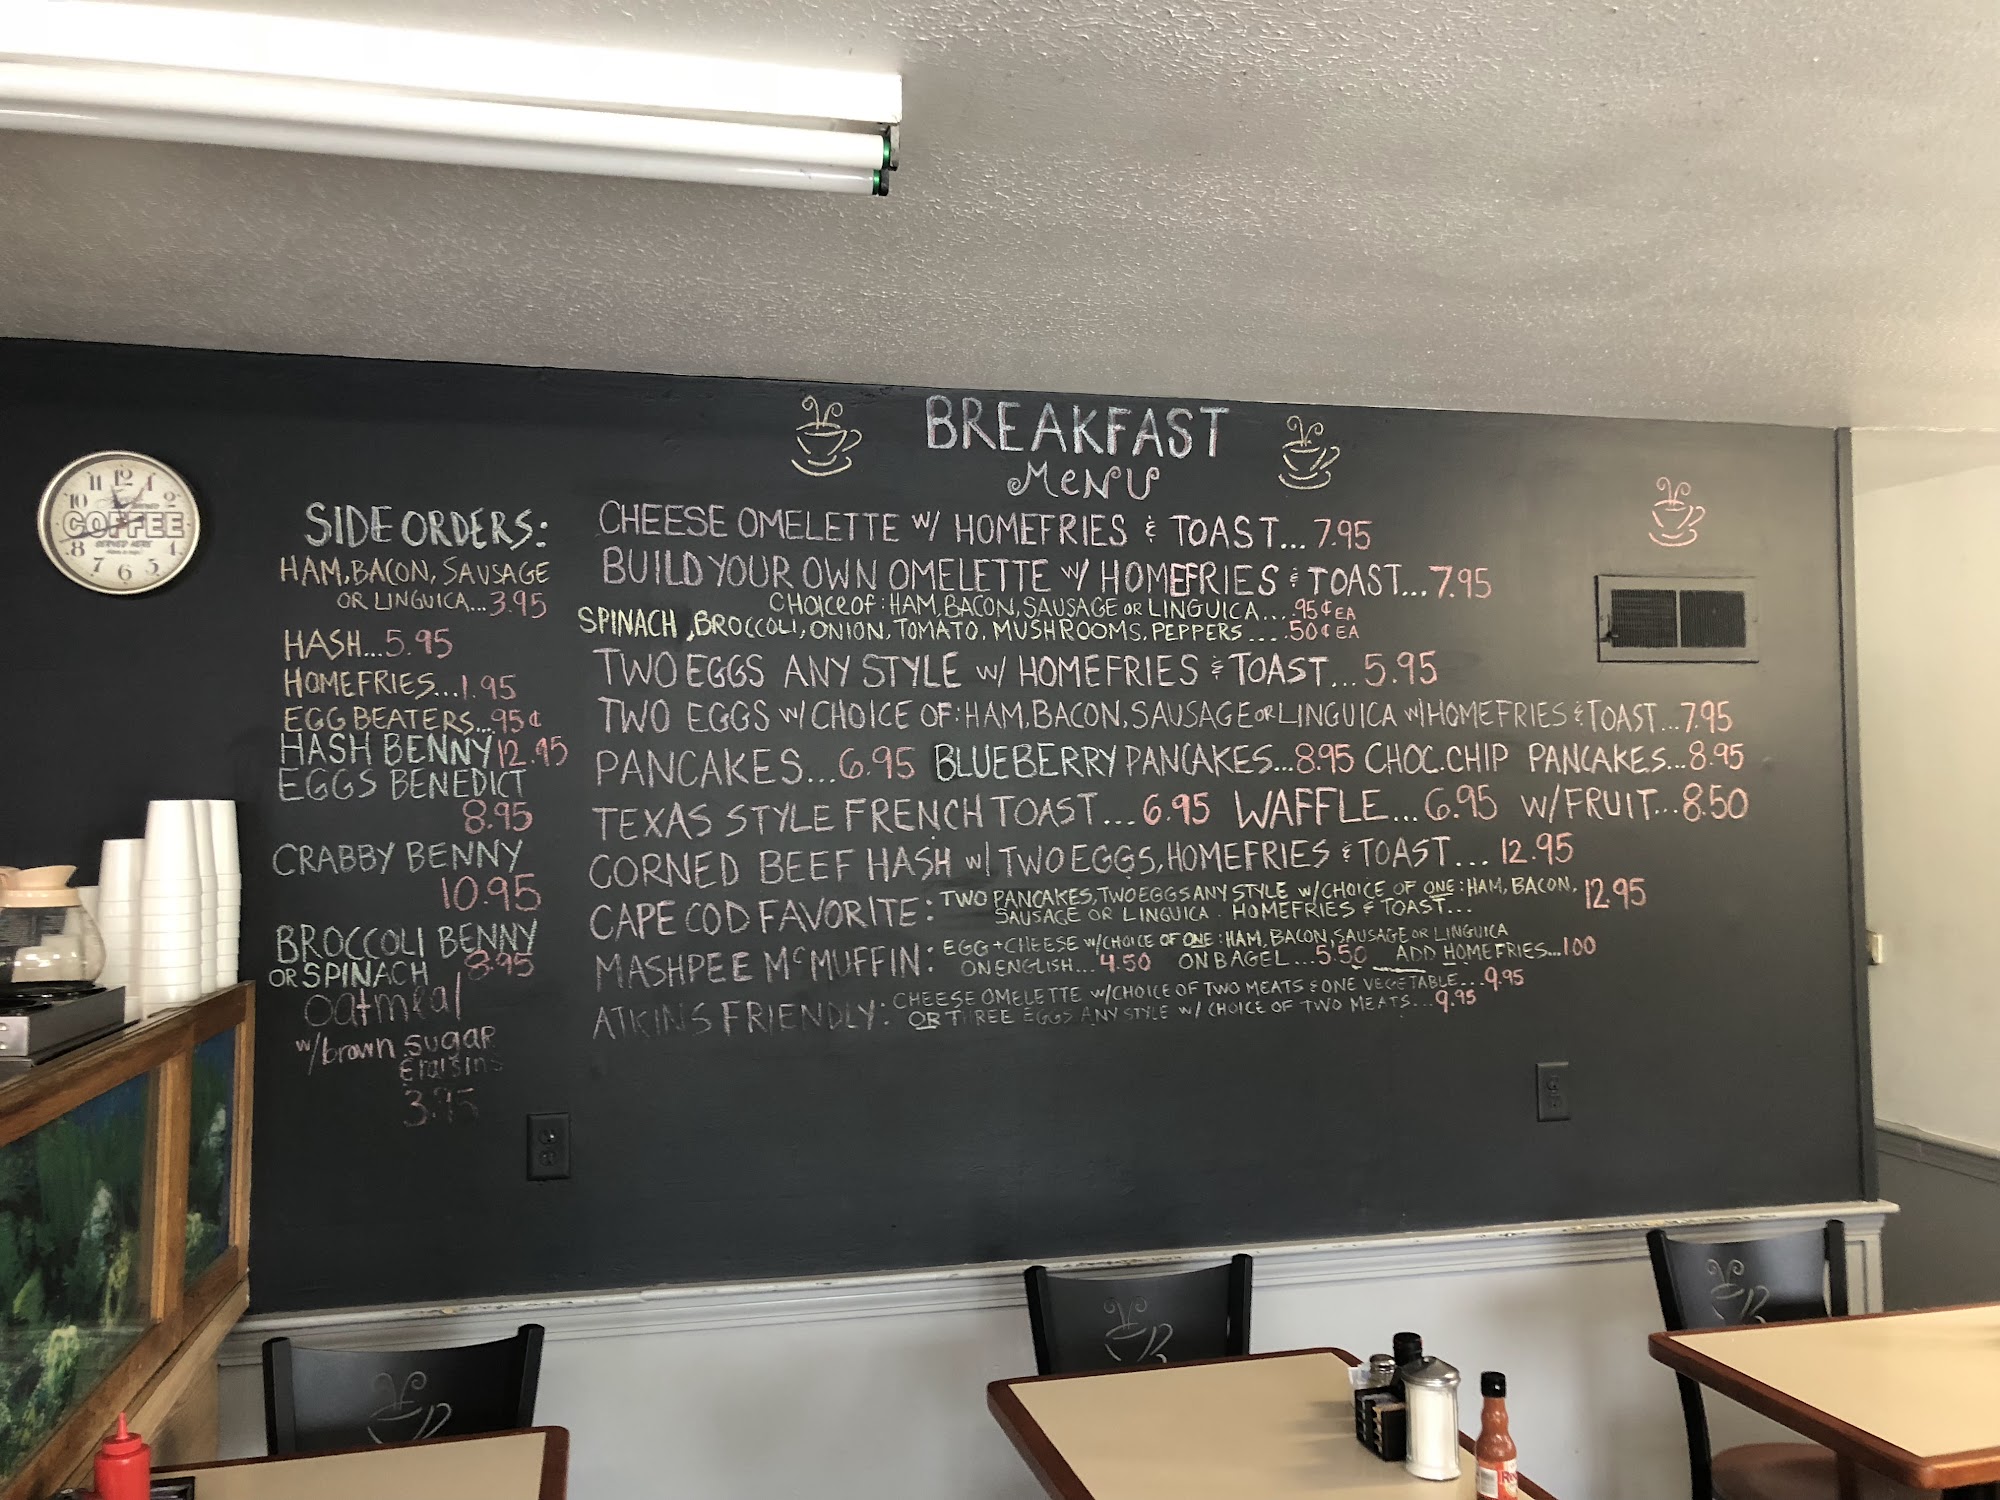 BREAKFAST
MENU
SIDE ORDERS:
HAM, BACON, SAUSAGE
OR LINGUICA...3.95
HASH...5.95
HOMEFRIES...1.95
EGG BEATERS...95¢
HASH BENNY 12.95
EGGS BENEDICT
8.95
CRABBY BENNY
10.95
BROCCOLI BENNY
OR SPINACH 8.95
oatmeal
w/brown sugar
& raisins
3.95
CHEESE OMELETTE W/ HOMEFRIES & TOAST...7.95
BUILD YOUR OWN OMELETTE W/ HOMEFRIES & TOAST...7.95
CHOICE OF: HAM, BACON, SAUSAGE OR LINGUICA....95¢ EA
SPINACH, BROCCOLI, ONION, TOMATO, MUSHROOMS, PEPPERS....50¢ EA
TWO EGGS ANY STYLE W/ HOMEFRIES & TOAST...5.95
TWO EGGS W/CHOICE OF: HAM, BACON, SAUSAGE OR LINGUICA W/HOMEFRIES & TOAST...7.95
PANCAKES...6.95 BLUEBERRY PANCAKES...8.95 CHOC.CHIP PANCAKES...8.95
TEXAS STYLE FRENCH TOAST...6.95 WAFFLE...6.95 W/FRUIT...8.50
CORNED BEEF HASH W/ TWO EGGS, HOMEFRIES & TOAST...12.95
CAPE COD FAVORITE: TWO PANCAKES, TWO EGGS ANY STYLE W/CHOICE OF ONE: HAM, BACON, 12.95
SAUSAGE OR LINGUICA. HOMEFRIES & TOAST...
MASHPEE MCMUFFIN: EGG + CHEESE W/CHOICE OF ONE: HAM, BACON, SAUSAGE OR LINGUICA
ON ENGLISH...4.50 ON BAGEL...5.50 ADD HOMEFRIES...1.00
ATKINS FRIENDLY: CHEESE OMELETTE W/CHOICE OF TWO MEATS & ONE VEGETABLE...9.95
OR THREE EGGS ANY STYLE W/ CHOICE OF TWO MEATS...9.95
11 12 1
10 2
COFFEE
SERVED HERE
8 4
7 6 5